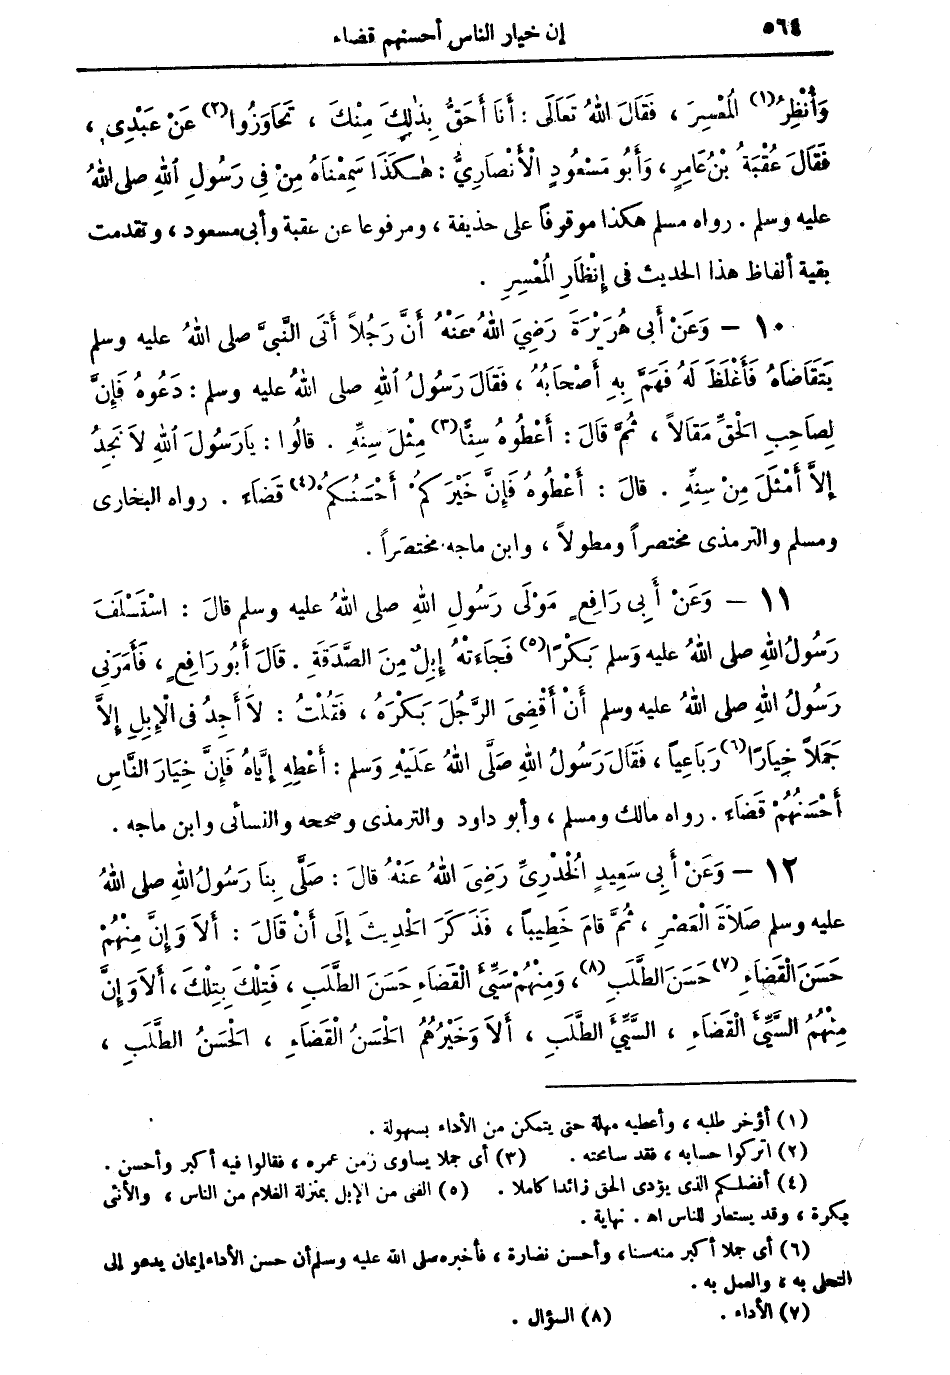 ٥٦٤
إن خيار الناس أحسنهم قضاء
وَأُنْظِرُ(١) الْمُعْسِرَ ، فَقَالَ اللهُ تَعَالَى : أَنَا أَحَقُّ بِذٰلِكَ مِنْكَ ، تَجَاوَزُوا(٢) عَنْ عَبْدِى ،
فَقَالَ عُقْبَةُ بْنُ عَامِرٍ ، وَأَبُو مَسْعُودٍ الْأَنْصَارِيُّ : هٰكَذَا سَمِعْنَاهُ مِنْ فِى رَسُولِ اللهِ صلى اللهُ
عليه وسلم . رواه مسلم هكذا موقوفاً على حذيفة ، ومرفوعا عن عقبة وأبى مسعود ، وتقدمت
بقية ألفاظ هذا الحديث فى إِنْظَارِ الْمُعْسِرِ .
١٠ – وَعَنْ أَبِى هُرَيْرَةَ رَضِيَ اللهُ عَنْهُ أَنَّ رَجُلاً أَتَى النَّبِىَّ صلى اللهُ عليه وسلم
يَتَقَاضَاهُ فَأَغْلَظَ لَهُ فَهَمَّ بِهِ أَصْحَابُهُ ، فَقَالَ رَسُولُ اللهِ صلى اللهُ عليه وسلم : دَعُوهُ فَإِنَّ
لِصَاحِبِ الْحَقِّ مَقَالاً ، ثُمَّ قَالَ : أَعْطُوهُ سِنًّا(٣) مِثْلَ سِنِّهِ . قالُوا : يَارَسُولَ اللهِ لاَ نَجِدُ
إِلاَّ أَمْثَلَ مِنْ سِنِّهِ . قالَ : أَعْطُوهُ فَإِنَّ خَيْرَكمُ أَحْسَنُكمُ(٤) قَضَاء . رواه البخارى
ومسلم والترمذى مختصراً ومطولاً ، وابن ماجه مختصَراً .
١١ – وَعَنْ أَبِى رَافِعٍ مَوْلَى رَسُولِ اللهِ صلى اللهُ عليه وسلم قالَ : اسْتَسْلَفَ
رَسُولُ اللهِ صلى اللهُ عليه وَسلم بَكْرًا(٥) فَجَاءَتْهُ إِبِلٌ مِنَ الصَّدَقَةِ . قالَ أَبُو رَافِعٍ ، فَأَمَرَنِى
رَسُولُ اللهِ صلى اللهُ عليه وسلم أَنْ أَقْضِىَ الرَّجُلَ بَكْرَهُ ، فَقُلْتُ : لاَ أَجِدُ فى الْإِبِلِ إِلاَّ
جَمَلاً خِيَارًا(٦) رَبَاعِياً ، فَقَالَ رَسُولُ اللهِ صَلَّى اللهُ عَلَيْهِ وَسلم : أَعْطِهِ إِيَّاهُ فَإِنَّ خِيَارَ النَّاسِ
أَحْسَنُهُمْ قَضَاء . رواه مالك ومسلم ، وأبو داود والترمذى وصححه والنسائى وابن ماجه .
١٢ – وَعَنْ أَبِى سَعِيدٍ الْخُدْرِىِّ رَضِىَ اللهُ عَنْهُ قالَ : صَلَّى بِنَا رَسُولُ اللهِ صلى اللهُ
عليه وسلم صَلاَةَ الْعَصْرِ ، ثُمَّ قامَ خَطِيباً ، فَذَكَرَ الْحَدِيثَ إِلَى أَنْ قَالَ : أَلاَ وَإِنَّ مِنْهُمْ
حَسَنَ الْقَضَاءِ(٧) حَسَنَ الطَّلَبِ(٨) ، وَمِنْهُمْ سَيِّئَ الْقَضَاءِ حَسَنَ الطَّلَبِ ، فَتِلْكَ بِتِلْكَ ، أَلاَ وَإِنَّ
مِنْهُمُ السَّيِّئَ الْقَضَاءِ ، السَّيِّئَ الطَّلَبِ ، أَلاَ وَخَيْرُهُمُ الْحَسَنُ الْقَضَاءِ ، الْحَسَنُ الطَّلَبِ ،
(١) أؤخر طلبه ، وأعطيه مهلة حتى يتمكن من الأداء بسهولة .
(٢) اتركوا حسابه ، فقد سامحته . (٣) أى جملا يساوى زمن عمره ، فقالوا فيه أكبر وأحسن .
(٤) أفضلكم الذى يؤدى الحق زائدا كاملا . (٥) الفتى من الإبل بمنزلة الغلام من الناس ، والأنثى
بكرة ، وقد يستعار للناس اهـ . نهاية .
(٦) أى جملا أكبر منه سنا ، وأحسن نضارة ، فأخبره صلى الله عليه وسلم أن حسن الأداء إيمان يدعو إلى
التحلى به ، والعمل به .
(٧) الأداء . (٨) السؤال .